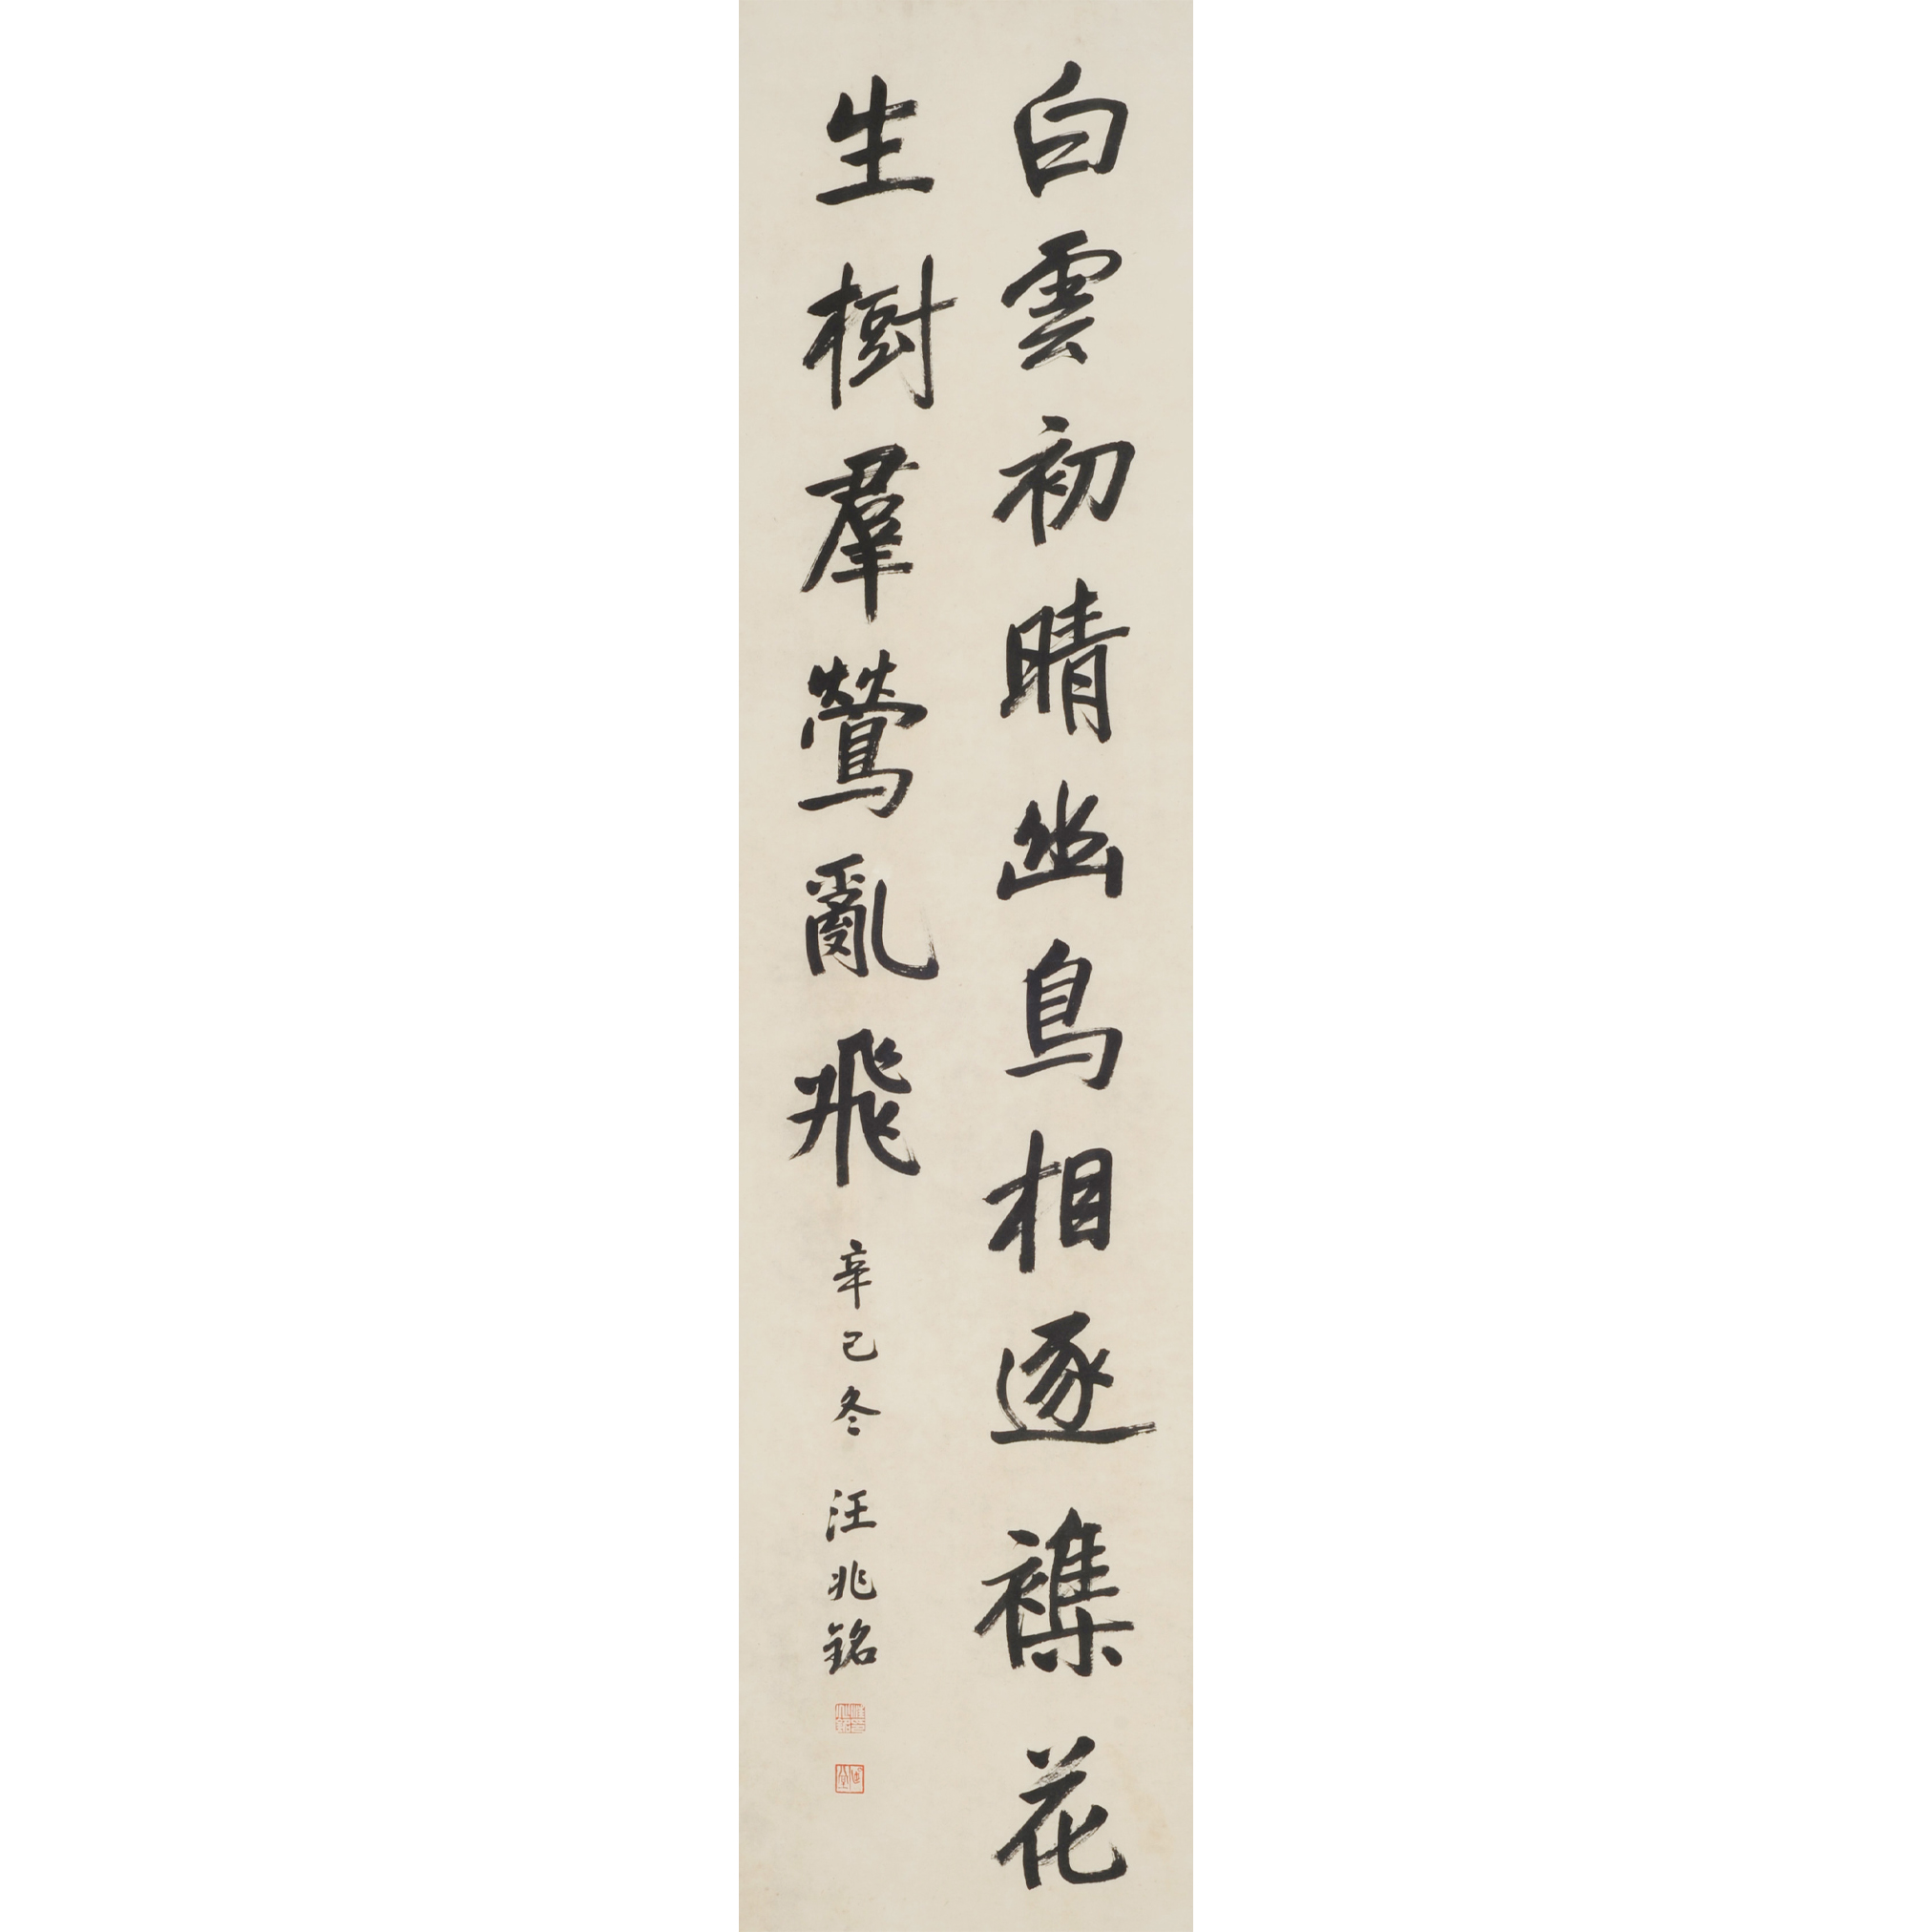 白雲初晴幽鳥相逐襍花
生樹羣鶯亂飛
辛巳冬 汪兆銘